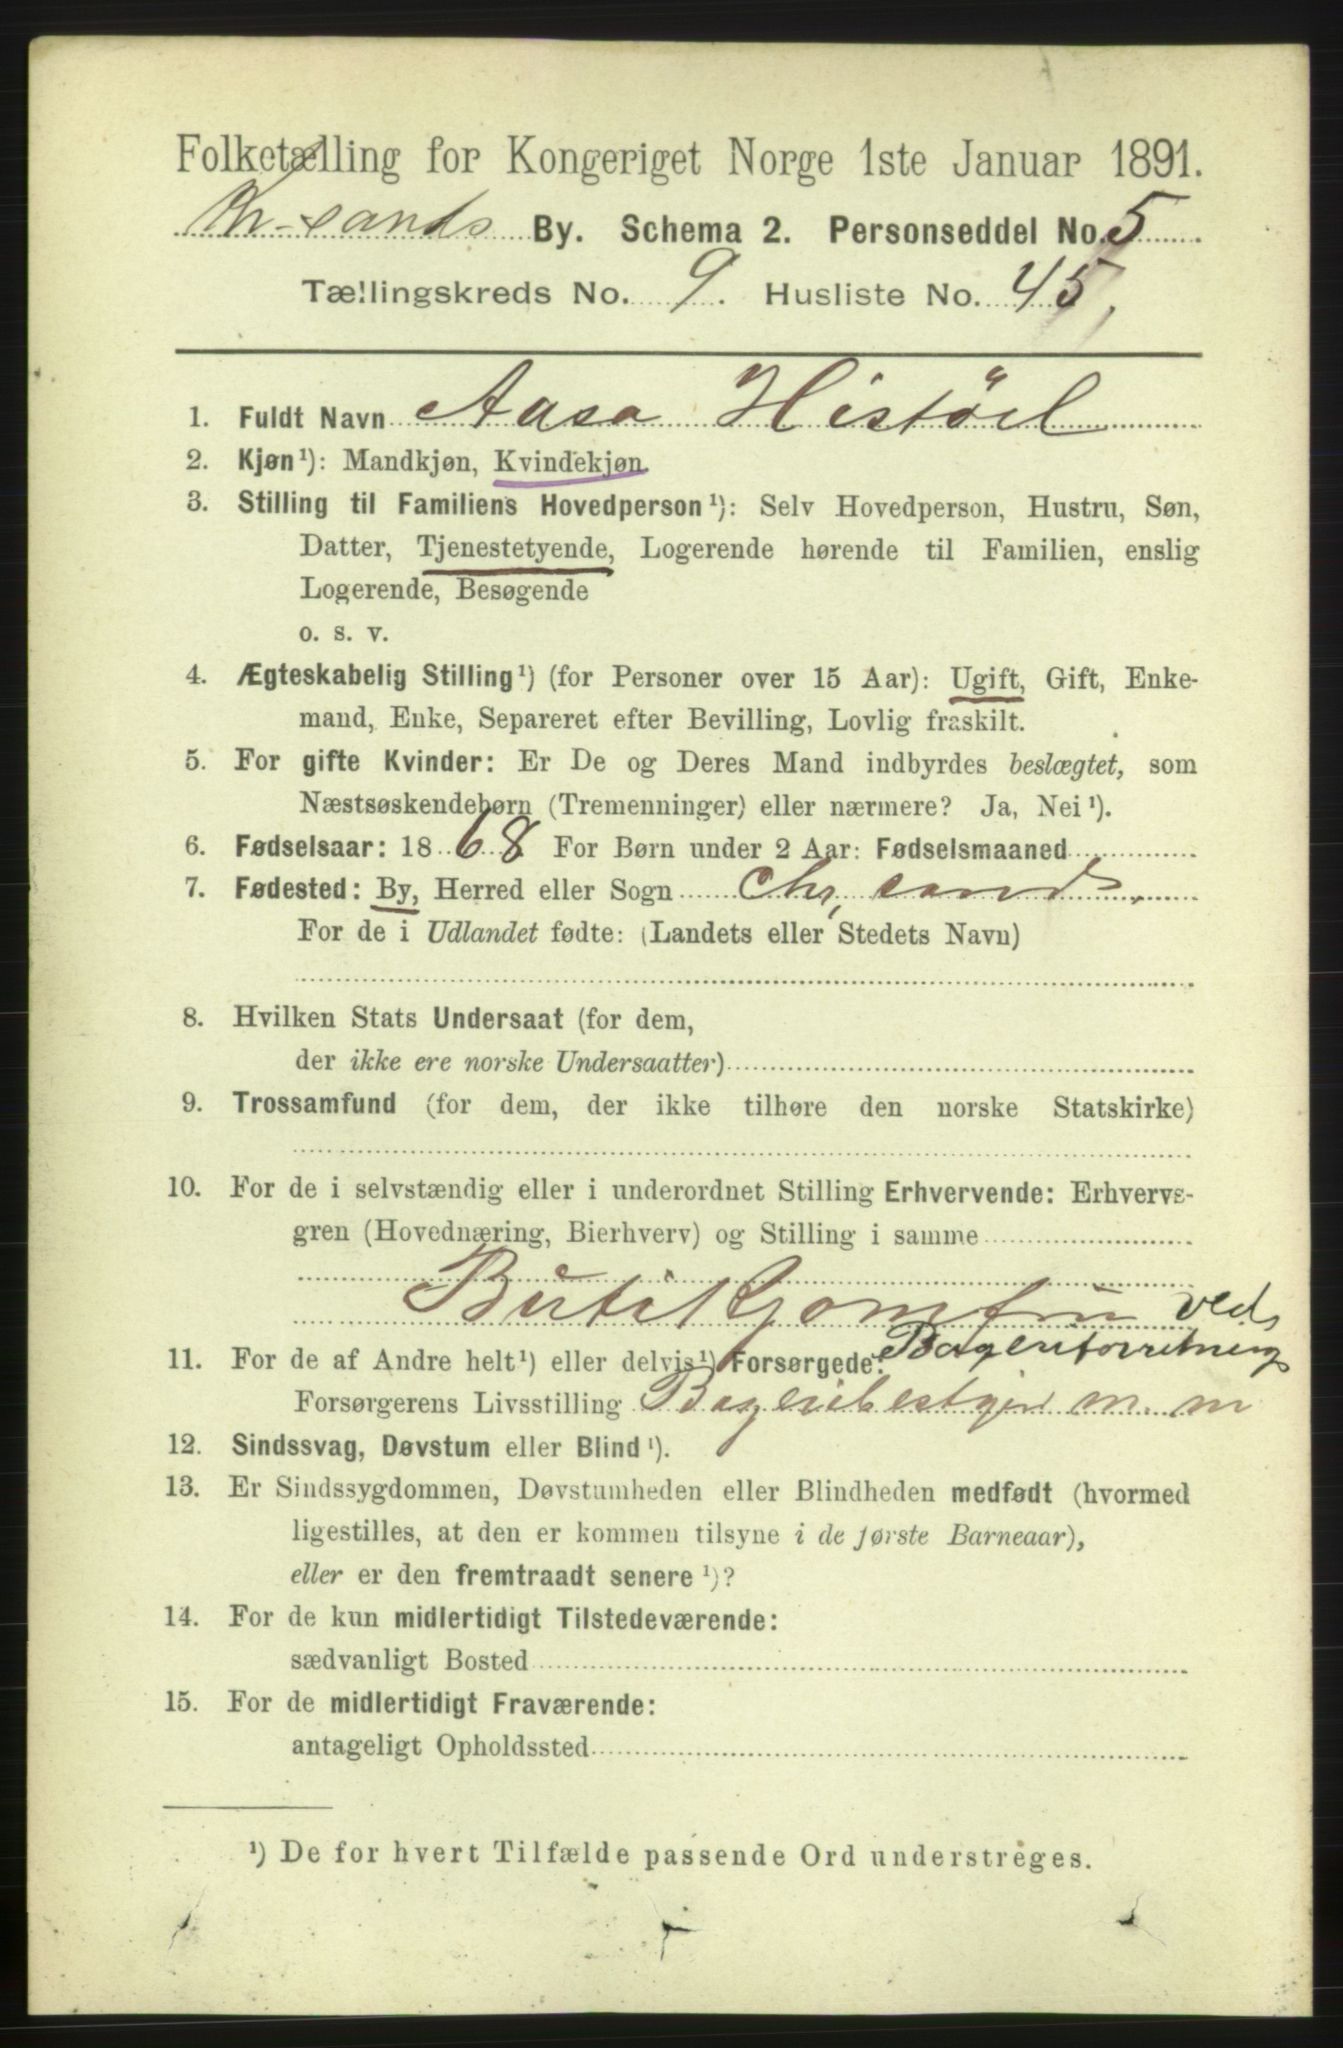 Folketælling for Kongeriget Norge 1ste Januar 1891.
Kr-sands By. Schema 2. Personseddel No. 5
Tællingskreds No. 9. Husliste No. 45.
1. Fuldt Navn Aasa Histöel
2. Kjøn¹): Mandkjøn, Kvindekjøn
3. Stilling til Familiens Hovedperson¹): Selv Hovedperson, Hustru, Søn,
Datter, Tjenestetyende, Logerende hørende til Familien, enslig
Logerende, Besøgende
o. s. v.
4. Ægteskabelig Stilling¹) (for Personer over 15 Aar): Ugift, Gift, Enke-
mand, Enke, Separeret efter Bevilling, Lovlig fraskilt.
5. For gifte Kvinder: Er De og Deres Mand indbyrdes beslægtet, som
Næstsøskendebørn (Tremenninger) eller nærmere? Ja, Nei¹).
6. Fødselsaar: 1868 For Børn under 2 Aar: Fødselsmaaned
7. Fødested: By, Herred eller Sogn Chr, sand.
For de i Udlandet fødte: (Landets eller Stedets Navn)
8. Hvilken Stats Undersaat (for dem,
der ikke ere norske Undersaatter)
9. Trossamfund (for dem, der ikke tilhøre den norske Statskirke)
10. For de i selvstændig eller i underordnet Stilling Erhvervende: Erhvervs-
gren (Hovednæring, Bierhverv) og Stilling i samme
Butikjomfru ved
Bageriforretning
11. For de af Andre helt¹) eller delvis¹) Forsørgede:
Forsørgerens Livsstilling Bageribestyer m. m
12. Sindssvag, Døvstum eller Blind¹).
13. Er Sindssygdommen, Døvstumheden eller Blindheden medfødt (hvormed
ligestilles, at den er kommen tilsyne i de første Barneaar),
eller er den fremtraadt senere¹)?
14. For de kun midlertidigt Tilstedeværende:
sædvanligt Bosted
15. For de midlertidigt Fraværende:
antageligt Opholdssted
¹) De for hvert Tilfælde passende Ord understreges.